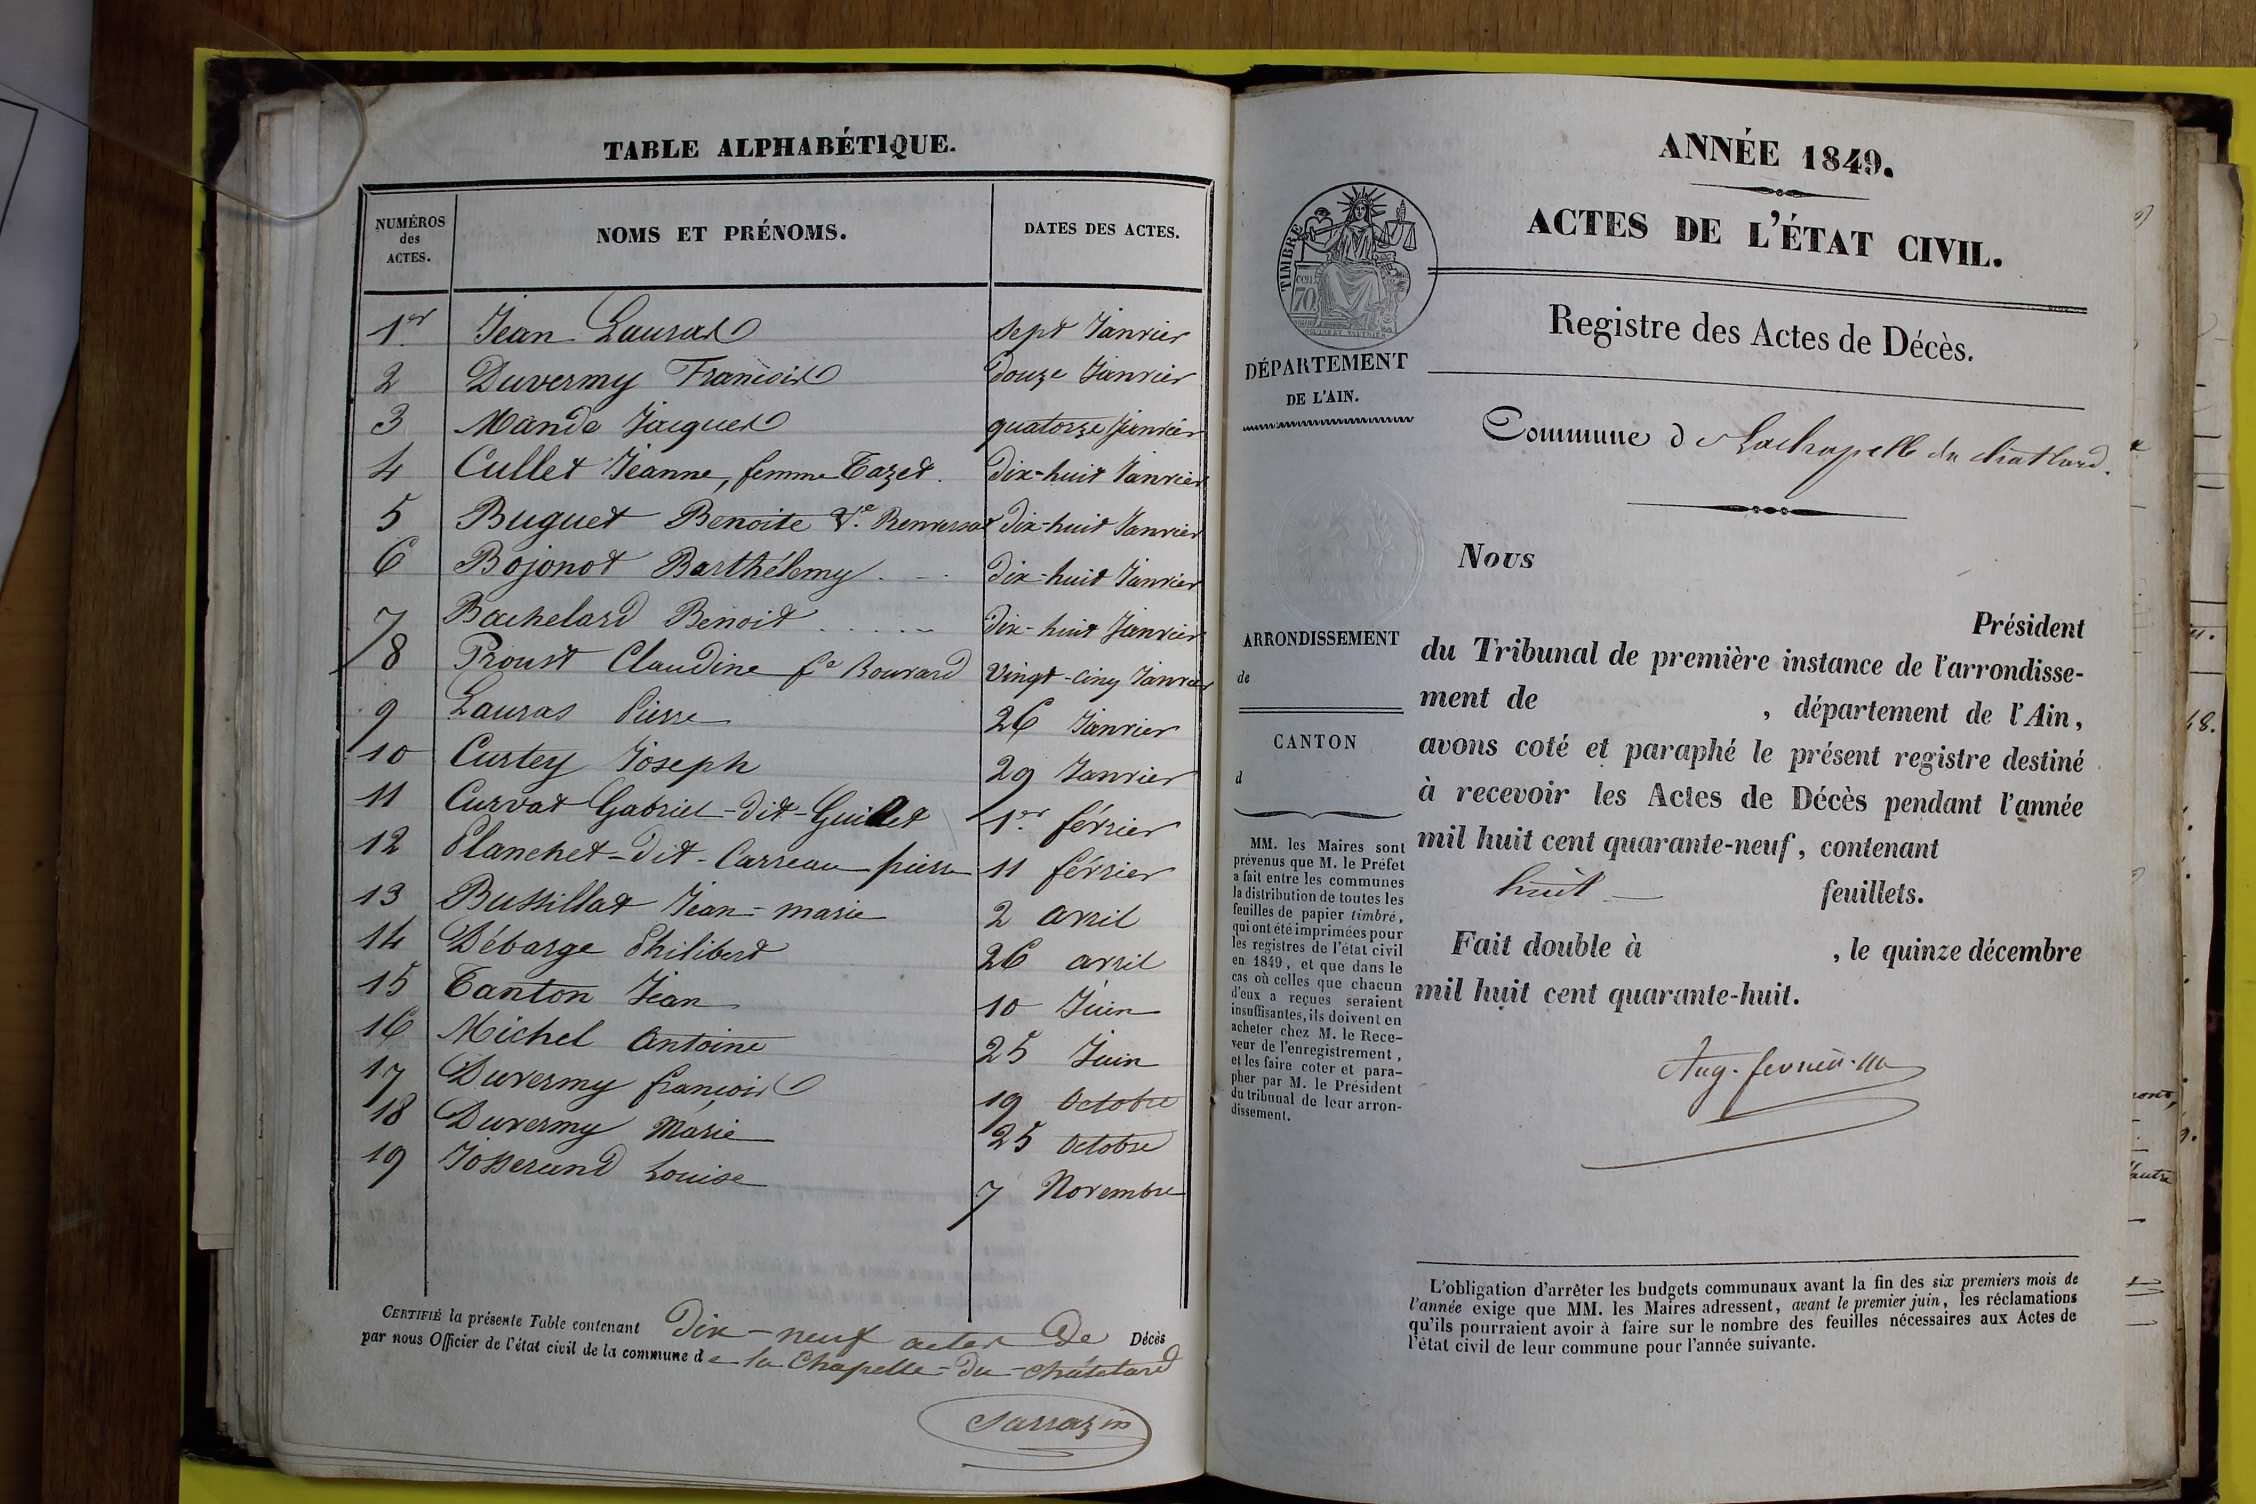 TABLE ALPHABÉTIQUE.
NUMÉROS des ACTES.
NOMS ET PRÉNOMS.
DATES DES ACTES.
1er Jean Lauras sept Janvier
2 Duvermy François Douze Janvier
3 Mande Jacques quatorze Janvier
4 Cullet Jeanne, femme Tazet. Dix-huit Janvier
5 Buguet Benoite Ve. Renversat Dix-huit Janvier
6 Bojonot Barthélemy Dix-huit Janvier
7 Bachelard Benoit Dix-huit Janvier
8 Proust Claudine fe Bouvard Vingt-cinq Janvier
9 Lauras Pierre 26 Janvier
10 Curtey Joseph 29 Janvier
11 Curvat Gabriel-dit-Guillet 1er. février
12 Planchet-dit-Carreau pierre 11 février
13 Bussillat Jean-marie 2 avril
14 Débarge Philibert 26 avril
15 Tanton Jean 10 Juin
16 Michel Antoine 25 Juin
17 Duvermy françois 19 Octobre
18 Duvermy Marie 25 Octobre
19 Josserand Louise 7 Novembre
CERTIFIÉ la présente Table contenant Dix-neuf actes De Décès
par nous Officier de l'état civil de la commune de la Chapelle-du-châtelard
Sarrazin
ANNÉE 1849.
ACTES DE L'ÉTAT CIVIL.
Registre des Actes de Décès.
TIMBRE
70
DÉPARTEMENT
DE L'AIN.
Commune de Lachapelle du chatlard.
ARRONDISSEMENT
de
CANTON
d
MM. les Maires sont
prévenus que M. le Préfet
a fait entre les communes
la distribution de toutes les
feuilles de papier timbré,
qui ont été imprimées pour
les registres de l'état civil
en 1849, et que dans le
cas où celles que chacun
d'eux a reçues seraient
insuffisantes, ils doivent en
acheter chez M. le Rece-
veur de l'enregistrement,
et les faire coter et para-
pher par M. le Président
du tribunal de leur arron-
dissement.
Nous
Président
du Tribunal de première instance de l'arrondisse-
ment de , département de l'Ain,
avons coté et paraphé le présent registre destiné
à recevoir les Actes de Décès pendant l'année
mil huit cent quarante-neuf, contenant
huit feuillets.
Fait double à , le quinze décembre
mil huit cent quarante-huit.
L'obligation d'arrêter les budgets communaux avant la fin des six premiers mois de
l'année exige que MM. les Maires adressent, avant le premier juin, les réclamations
qu'ils pourraient avoir à faire sur le nombre des feuilles nécessaires aux Actes de
l'état civil de leur commune pour l'année suivante.